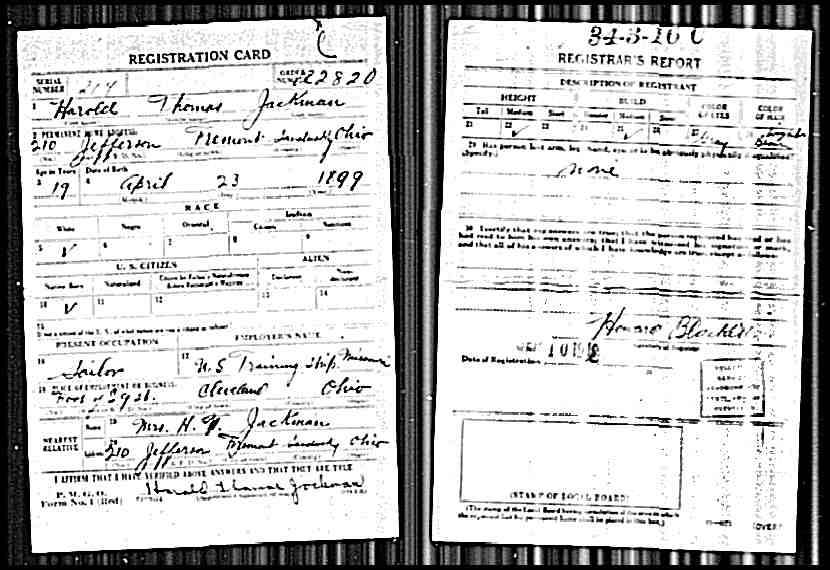 REGISTRATION CARD
SERIAL NUMBER 214
ORDER NUMBER 22820
1 Harold Thomas Jackman
2 PERMANENT HOME ADDRESS:
210 Jefferson Fremont Sandusky Ohio
Age in Years Date of Birth
3 19 4 April 23 1899
RACE
White Negro Oriental Indian
Citizen Noncitizen
5 ✓ 6 7 8 9
U. S. CITIZEN ALIEN
Native Born Naturalized Citizen by Father's Naturalization Before Registrant's Majority Declarant Non-declarant
10 ✓ 11 12 13 14
15
If not a citizen of the U. S., of what nation are you a citizen or subject?
PRESENT OCCUPATION EMPLOYER'S NAME
16 Sailor 17 U. S. Training Ship Missouri
18 PLACE OF EMPLOYMENT OR BUSINESS:
Foot of St. Cleveland Ohio
NEAREST RELATIVE
Name 19 Mrs. H. Jackman
Address 20 210 Jefferson Fremont Sandusky Ohio
I AFFIRM THAT I HAVE VERIFIED ABOVE ANSWERS AND THAT THEY ARE TRUE
P. M. G. O.
Form No. 1 (Red) Harold Thomas Jackman
34-3-10 C
REGISTRAR'S REPORT
DESCRIPTION OF REGISTRANT
HEIGHT BUILD COLOR OF EYES COLOR OF HAIR
Tall Medium Short Slender Medium Stout
21 22 ✓ 23 24 25 ✓ 26 27 Gray 28 Brown
29 Has person lost arm, leg, hand, eye, or is he obviously physically disqualified?
(Specify.)
none
30 I certify that my answers are true; that the person registered has read or has
had read to him his own answers; that I have witnessed his signature or mark,
and that all of his answers of which I have knowledge are true, except as follows:
Howard
Date of Registration
(STAMP OF LOCAL BOARD)
(The stamp of the Local Board having jurisdiction of the area in which
the registrant has his permanent home shall be placed in this box.)
(OVER)